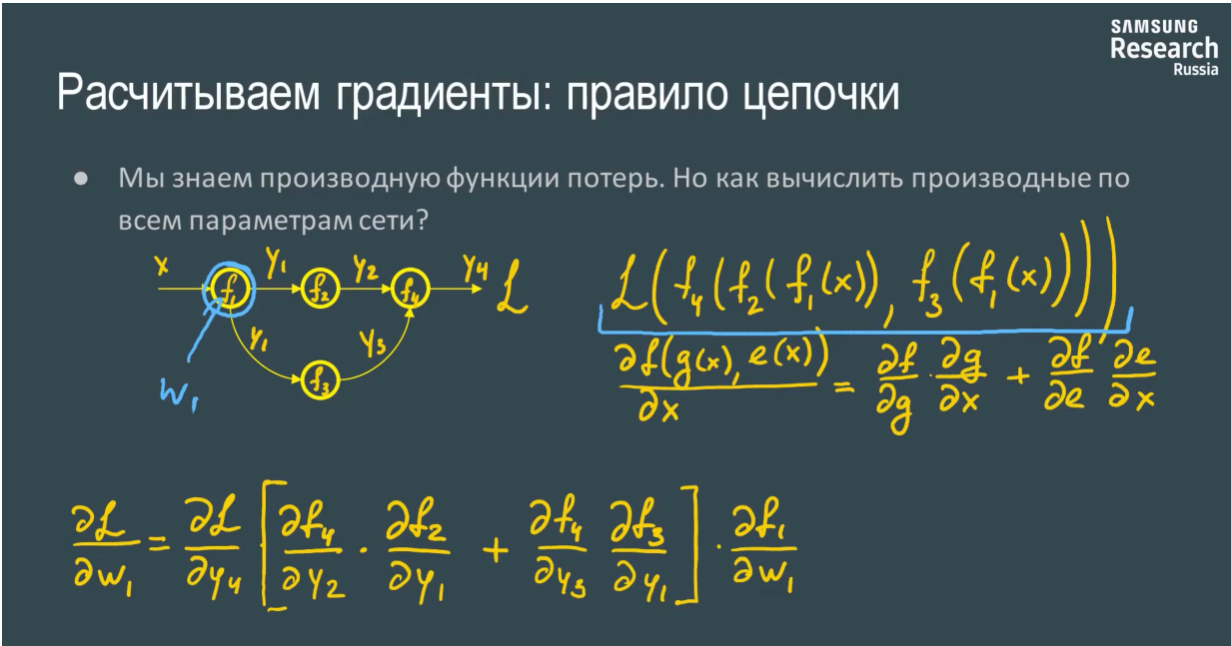 SAMSUNG
Research
Russia
Расчитываем градиенты: правило цепочки
● Мы знаем производную функции потерь. Но как вычислить производные по
всем параметрам сети?
x f₁ y₁ f₂ y₂ f₄ y₄ L
y₁ f₃ y₃
w₁
L(f₄(f₂(f₁(x)), f₃(f₁(x))))
∂f(g(x), e(x))/∂x = ∂f/∂g · ∂g/∂x + ∂f/∂e · ∂e/∂x
∂L/∂w₁ = ∂L/∂y₄ · [∂f₄/∂y₂ · ∂f₂/∂y₁ + ∂f₄/∂y₃ ∂f₃/∂y₁] · ∂f₁/∂w₁